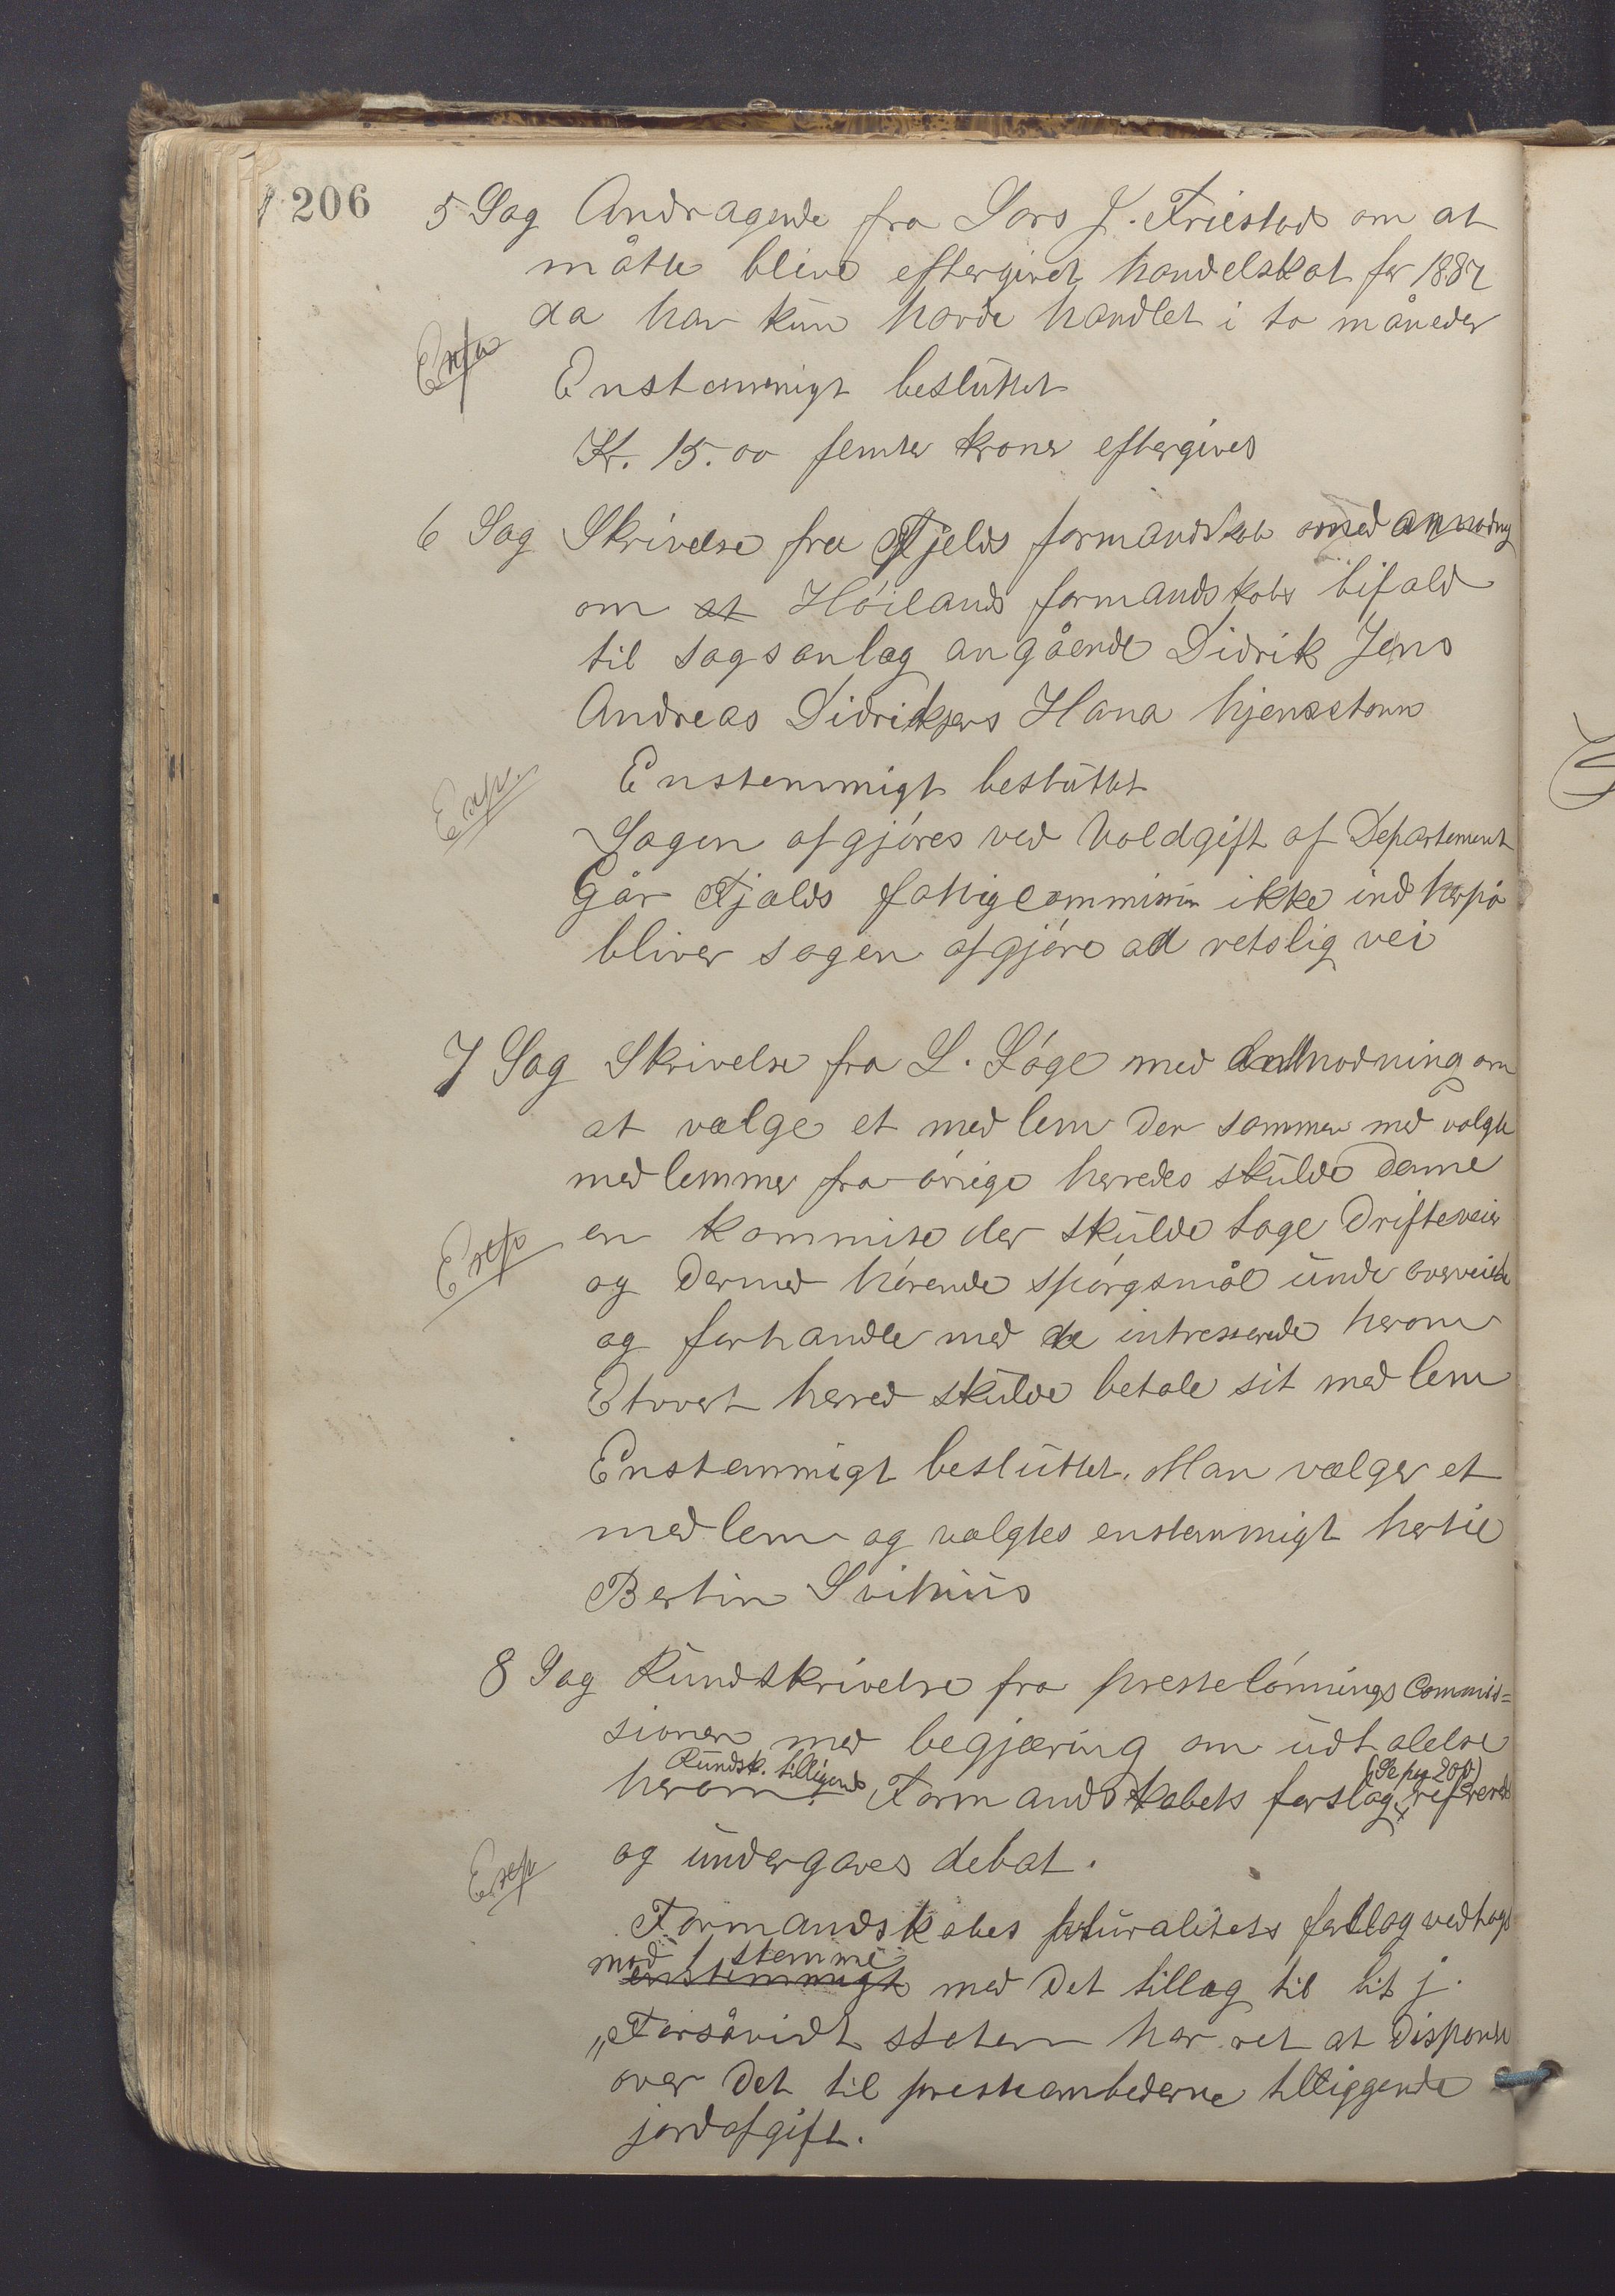 206
5 Sag Andragende fra Lars J. Friestad om at
måtte blive eftergivet handelskat for 1887
da han kun havde handlet i to måneder
Exp
Enstemmigt besluttet
Kr. 15.00 femten kroner eftergives
6 Sag Skrivelse fra Fjelds formandskab med anmodning
om at Høilands formandskabs bifald
til sagsanlæg angående Didrik Jens
Andreas Didriksens Hana hjemsstavn
Exp.
Enstemmigt besluttet
Sagen afgjøres ved Voldgift af Departement
Går Fjælds fattigcommission ikke ind herpå
bliver sagen afgjøre ad retslig vei
7 Sag Skrivelse fra L. Løge med anmodning om
at vælge et medlem der sammen med valgte
medlemmer fra øvrige herreder skulde danne
Exp
en kommite der skulde tage Drifteveier
og dermed hørende spørgsmål under overveielse
og forhandle med de intresserede herom
Ethvert herred skulde betale sit medlem
Enstemmigt besluttet. Man vælger et
medlem og valgtes enstemmigt hertil
Bertin Svihuus
8 Sag Rundskrivelse fra presteløningscommis=
sionen med begjæring om udtalelse
Rundsk. tilligemed (Se pag 200)
herom. Formandskabets forslag refereredes
Exp
og undergaves debat.
Formandskabets pluralitets forslag vedtages
med 1 stemme
enstemmigt med det tillæg til lit j.
„Forsåvidt staten har ret at disponere
over det til presteembederne tilliggende
jordafgift.